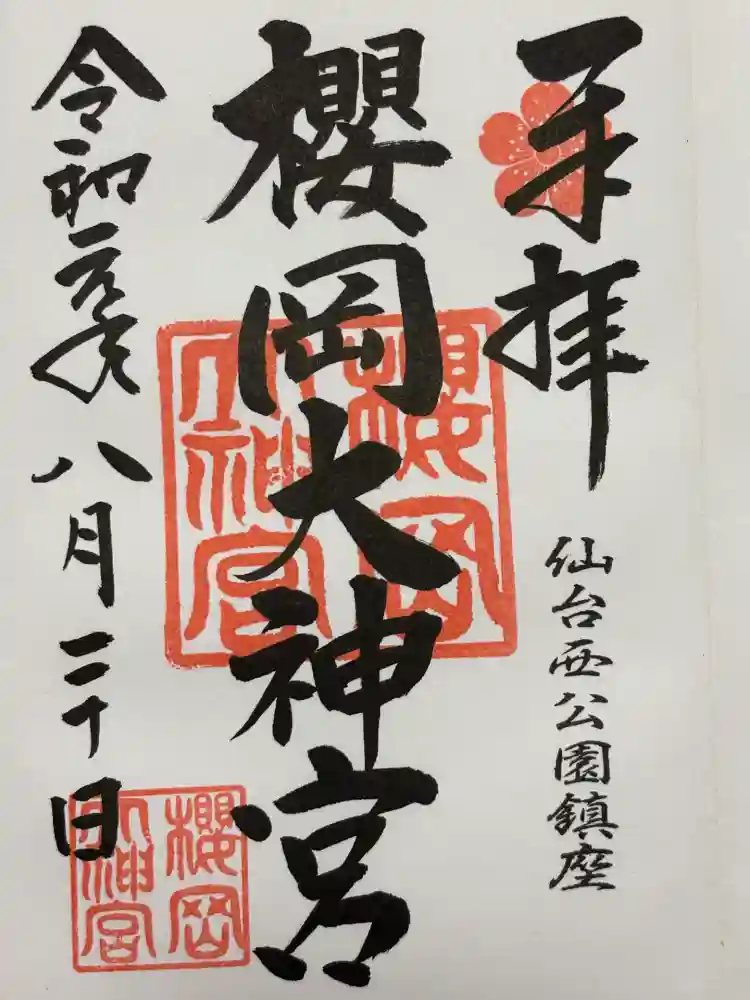 奉拝
仙台西公園鎮座
櫻岡大神宮
櫻岡大神宮
令和元年八月二十日
櫻岡大神宮